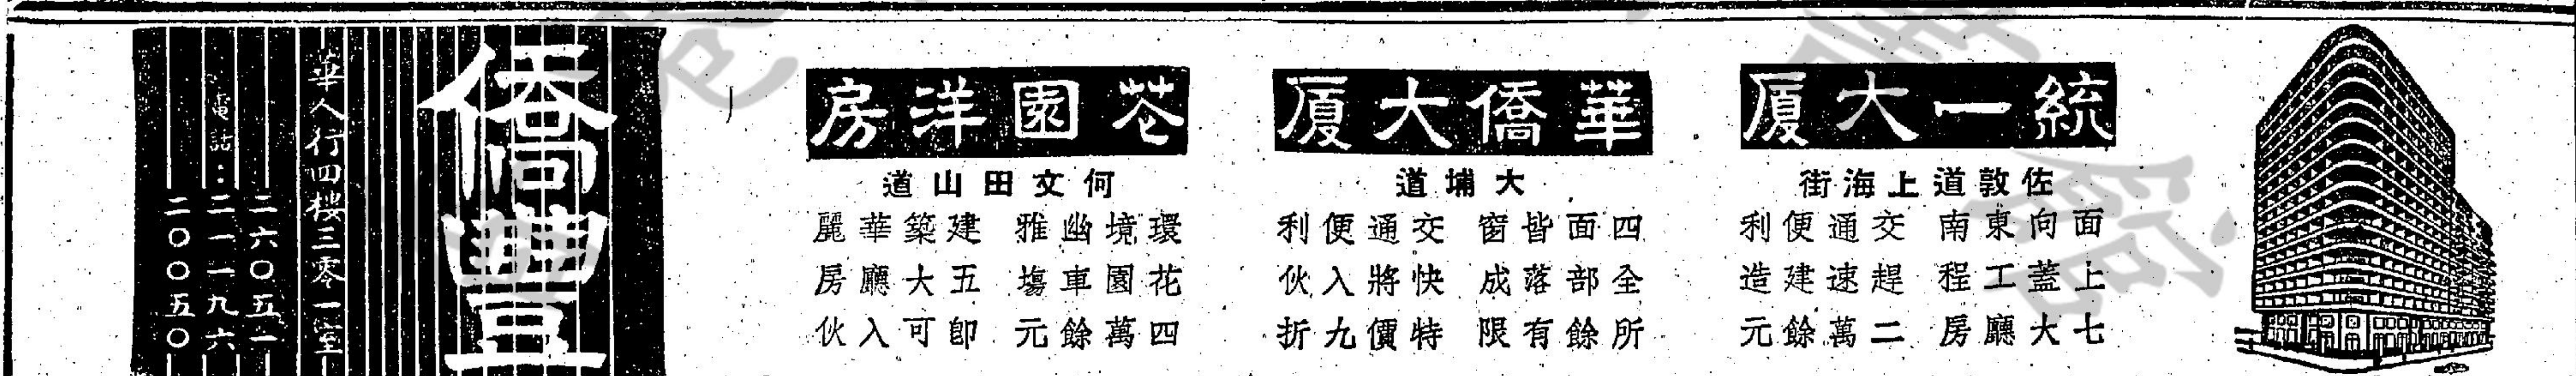 統一大厦
佐敦道上海街
面向東南 交通便利
上蓋工程 趕速建造
七大廳房 二萬餘元
華僑大厦
大埔道
四面皆窗 交通便利
全部落成 快將入伙
所餘有限 特價九折
芲園洋房
何文田山道
環境幽雅 建築華麗
花園車塲 五大廳房
四萬餘元 即可入伙
僑豐
華人行四樓三零一室
電話：
二六〇五一
二一一九六
二〇〇五〇